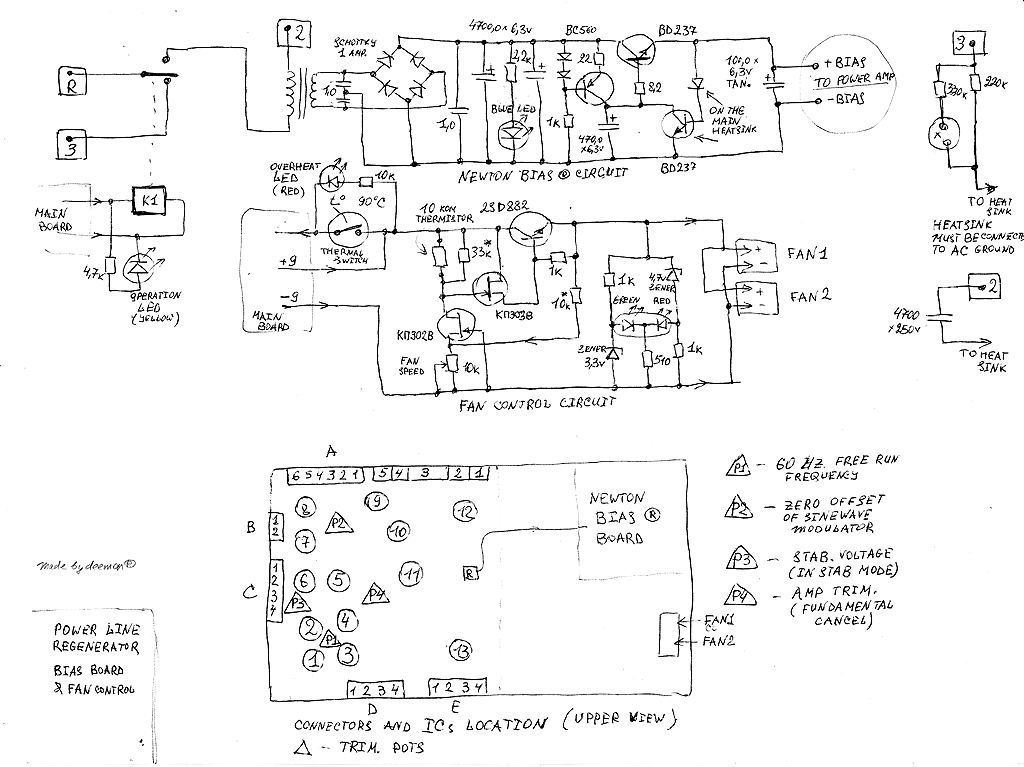 2
R
3
SCHOTTKY
1 AMP.
1,0
1,0
4700,0 x 6,3V
2,2K
BLUE LED
BC560
22
1K
470,0
x6,3V
BD237
82
BD237
ON THE
MAIN
HEATSINK
100,0 x
6,3V
TAN.
+ BIAS
TO POWER AMP
- BIAS
NEWTON BIAS ® CIRCUIT
3
330K
220K
x
TO HEAT
SINK
HEATSINK
MUST BE CONNECTED
TO AC GROUND
2
4700
x250V
TO HEAT
SINK
MAIN
BOARD
K1
4,7K
OPERATION
LED
(YELLOW)
OVERHEAT
LED
(RED)
10K
t° 90°C
THERMAL
SWITCH
+9
-9
MAIN
BOARD
10 KOM
THERMISTOR
2SD882
33K*
КП303В
КП302В
1K
10K*
FAN
SPEED
10K
1K
4,7V
ZENER
GREEN RED
ZENER
3,3V
510
1K
+
-
+
-
FAN1
FAN2
FAN CONTROL CIRCUIT
A
6 5 4 3 2 1
5 4 3 2 1
B
1
2
C
1
2
3
4
8
9
12
P2
7
10
6
5
11
P3
P4
2
4
P1
1
3
13
R
NEWTON
BIAS ®
BOARD
FAN1
FAN2
1 2 3 4
D
1 2 3 4
E
CONNECTORS AND ICs LOCATION (UPPER VIEW)
△ - TRIM. POTS
P1 - 60 HZ. FREE RUN
FREQUENCY
P2 - ZERO OFFSET
OF SINEWAVE
MODULATOR
P3 - STAB. VOLTAGE
(IN STAB MODE)
P4 - AMP TRIM.
(FUNDAMENTAL
CANCEL)
made by doemon®
POWER LINE
REGENERATOR
BIAS BOARD
& FAN CONTROL